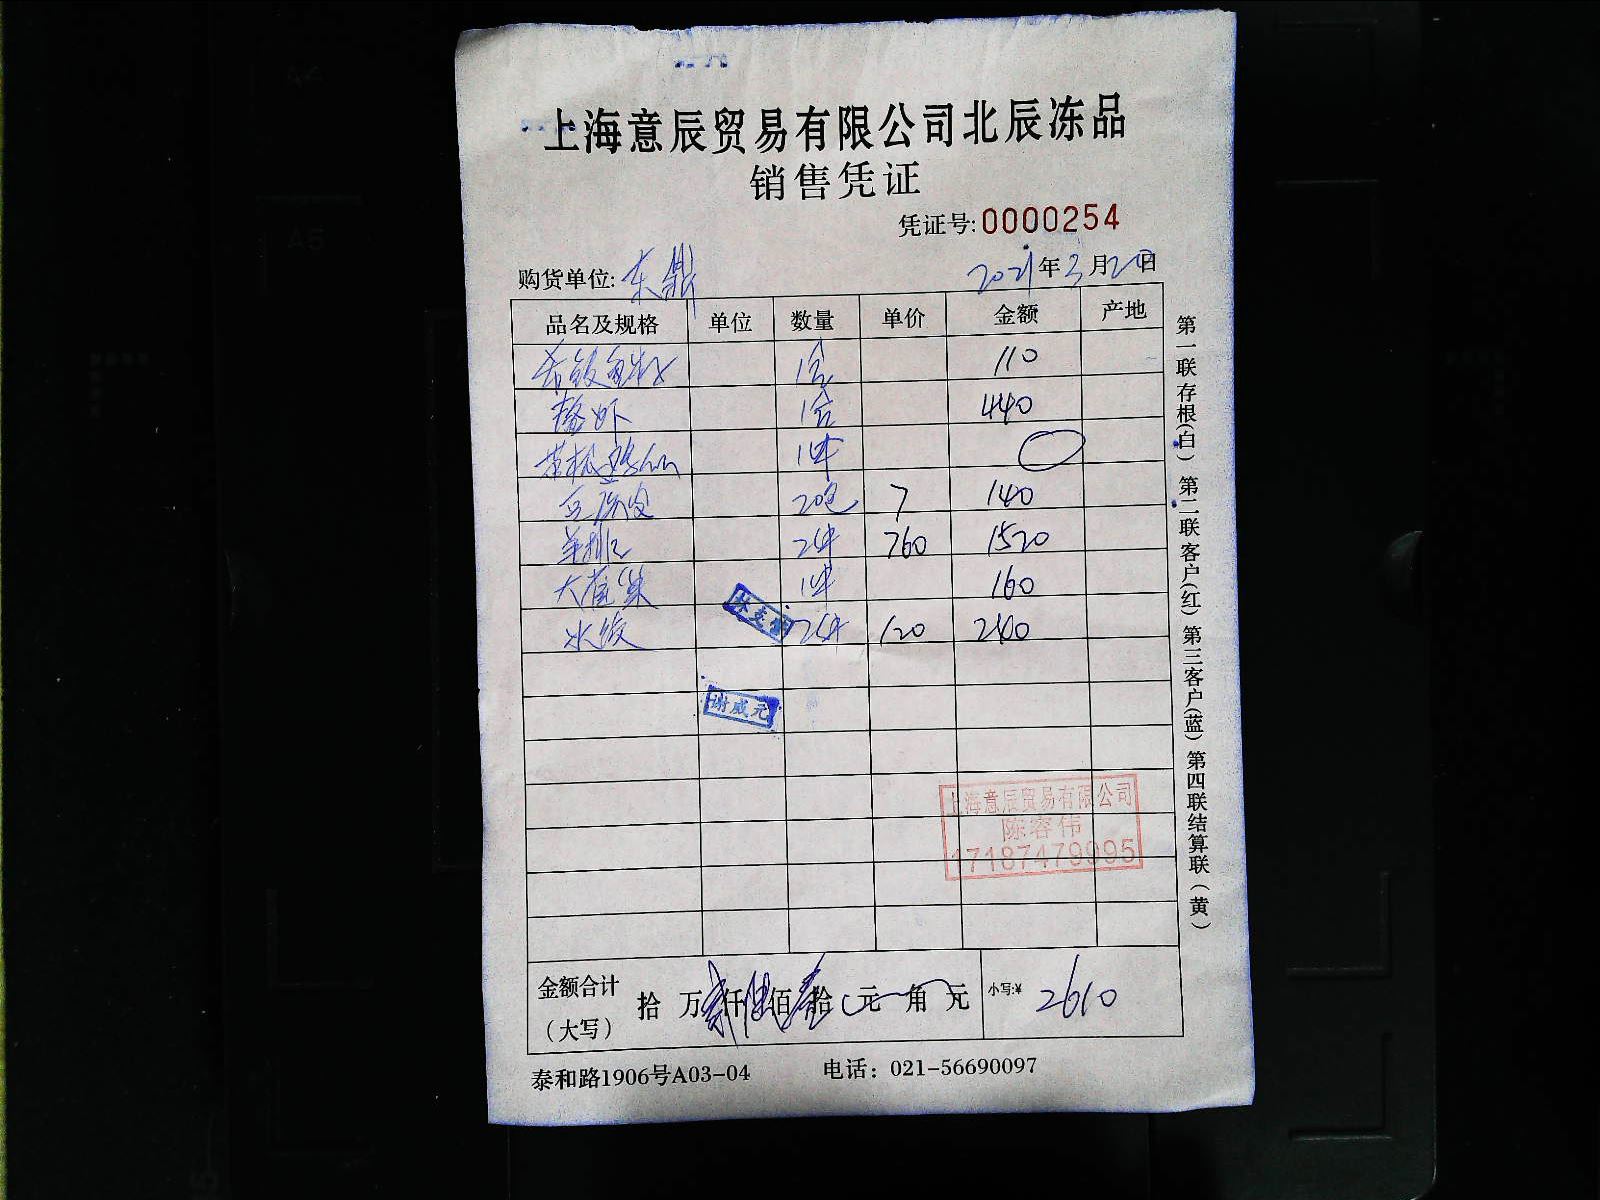 上海意辰贸易有限公司北辰冻品
销售凭证
凭证号:0000254
购货单位:东鼎 2021年3月20日
品名及规格 单位 数量 单价 金额 产地
1合 110
1合 440
1件
豆腐皮 20包 7 140
羊排 2件 760 1520
1件 160
水饺 2件 120 240
谢咸元
上海意辰贸易有限公司
陈容伟
17187479995
金额合计(大写) 拾 万 仟 佰 拾 元 角 元 小写:¥ 2610
泰和路1906号A03-04 电话：021-56690097
第一联存根(白) 第二联客户(红) 第三客户(蓝) 第四联结算联(黄)